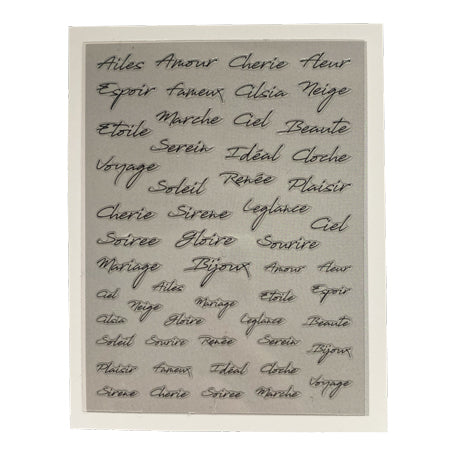 Ailes Amour Cherie fleur
Espoir fameux Cilsia Neige
Etoile Marche Ciel Beaute
Serein Idéal Cloche
Voyage Soleil Renée Plaisir
Cherie Sirene Leglance Ciel
Soiree Gloire Sourire
Mariage Bijoux Amour fleur
Ciel Ailes Etoile Espoir
Neige Mariage
Cilsia Gloire Leglance Beaute
Soleil Sourire Renée Serein Bijoux
Plaisir fameux Idéal Cloche
Sirene Cherie Soiree Marche Voyage